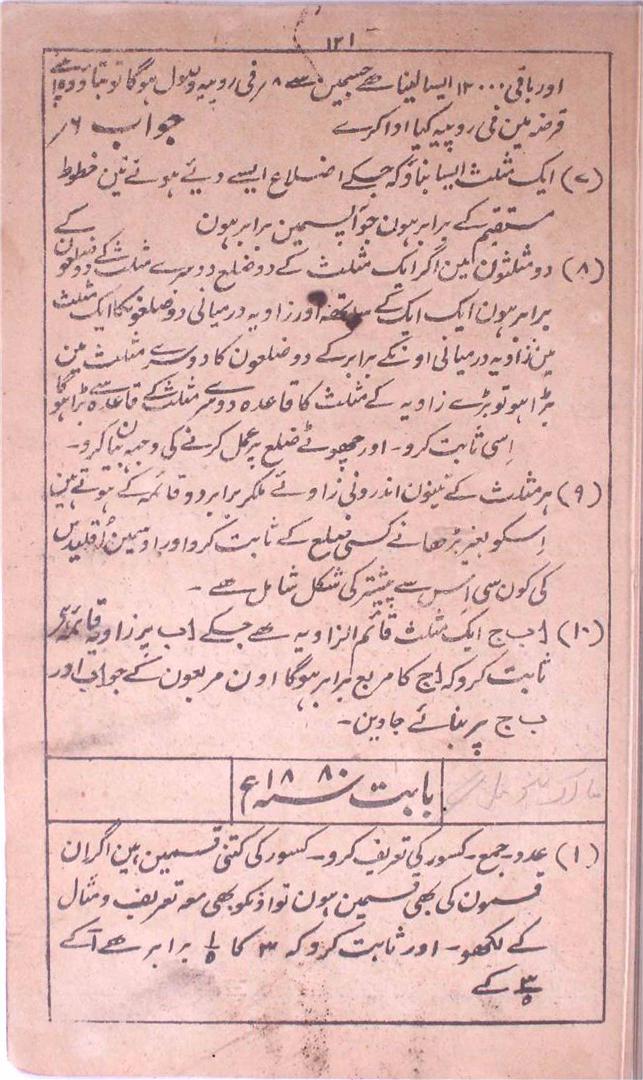 ۱۲۱
اور باقی ۱۲۰۰۰ ایسا لینا ہے جسمین سے ۸؍ فی روپیہ وصول ہوگا تو بتاؤ وہ اپنے
قرضہ مین فی روپیہ کیا ادا کرے جواب ۶؍
(۷) ایک مثلث ایسا بناؤ کہ جسکے اضلاع ایسے دیے ہوئے تین خطوط
مستقیم کے برابر ہون جو آپسمین برابر ہون
(۸) دو مثلثون مین اگر ایک مثلث کے دو ضلع دوسرے مثلث کے دو ضلعون کے
برابر ہون ایک ایک کے ساتھ اور زاویہ درمیانی دو ضلعونکا ایک مثلث
مین زاویہ درمیانی اونکے برابر کے دو ضلعون کا دوسرے مثلث مین
بڑا ہو تو بڑے زاویہ کے مثلث کا قاعدہ دوسرے مثلث کے قاعدہ سے بڑا ہوگا
اِسی ثابت کرو۔ اور چھوٹے ضلع پر عمل کرنے کی وجہ بیان کرو۔
(۹) ہر مثلث کے تینون اندرونی زاوئے ملکر برابر دو قائمہ کے ہوتے ہین
اِسکو بغیر بڑھانے کسی ضلع کے ثابت کرو اور اوسمین اُقلیدس
کی کون سی اِس سے پیشتر کی شکل شامل ہے۔
(۱۰) ا ب ج ایک مثلث قائم الزاویہ ہے جسکے ا ب پر زاویہ قائمہ ہے
ثابت کرو کہ ا ج کا مربع برابر ہوگا اون مربعون کے جو ا ب اور
ب ج پر بنائے جاوین۔
بابت سنہ ۱۸۸۰ع
(۱) عدد۔ جمع۔ کسور کی تعریف کرو۔ کسور کی کتنی قسمین ہین اگر ان
قسمون کی بھی قسمین ہون تو اونکو بھی معہ تعریف و مثال
کے لکھو۔ اور ثابت کرو کہ ۳ کا ۱/۵ برابر ہے ا کے
۳/۵ کے